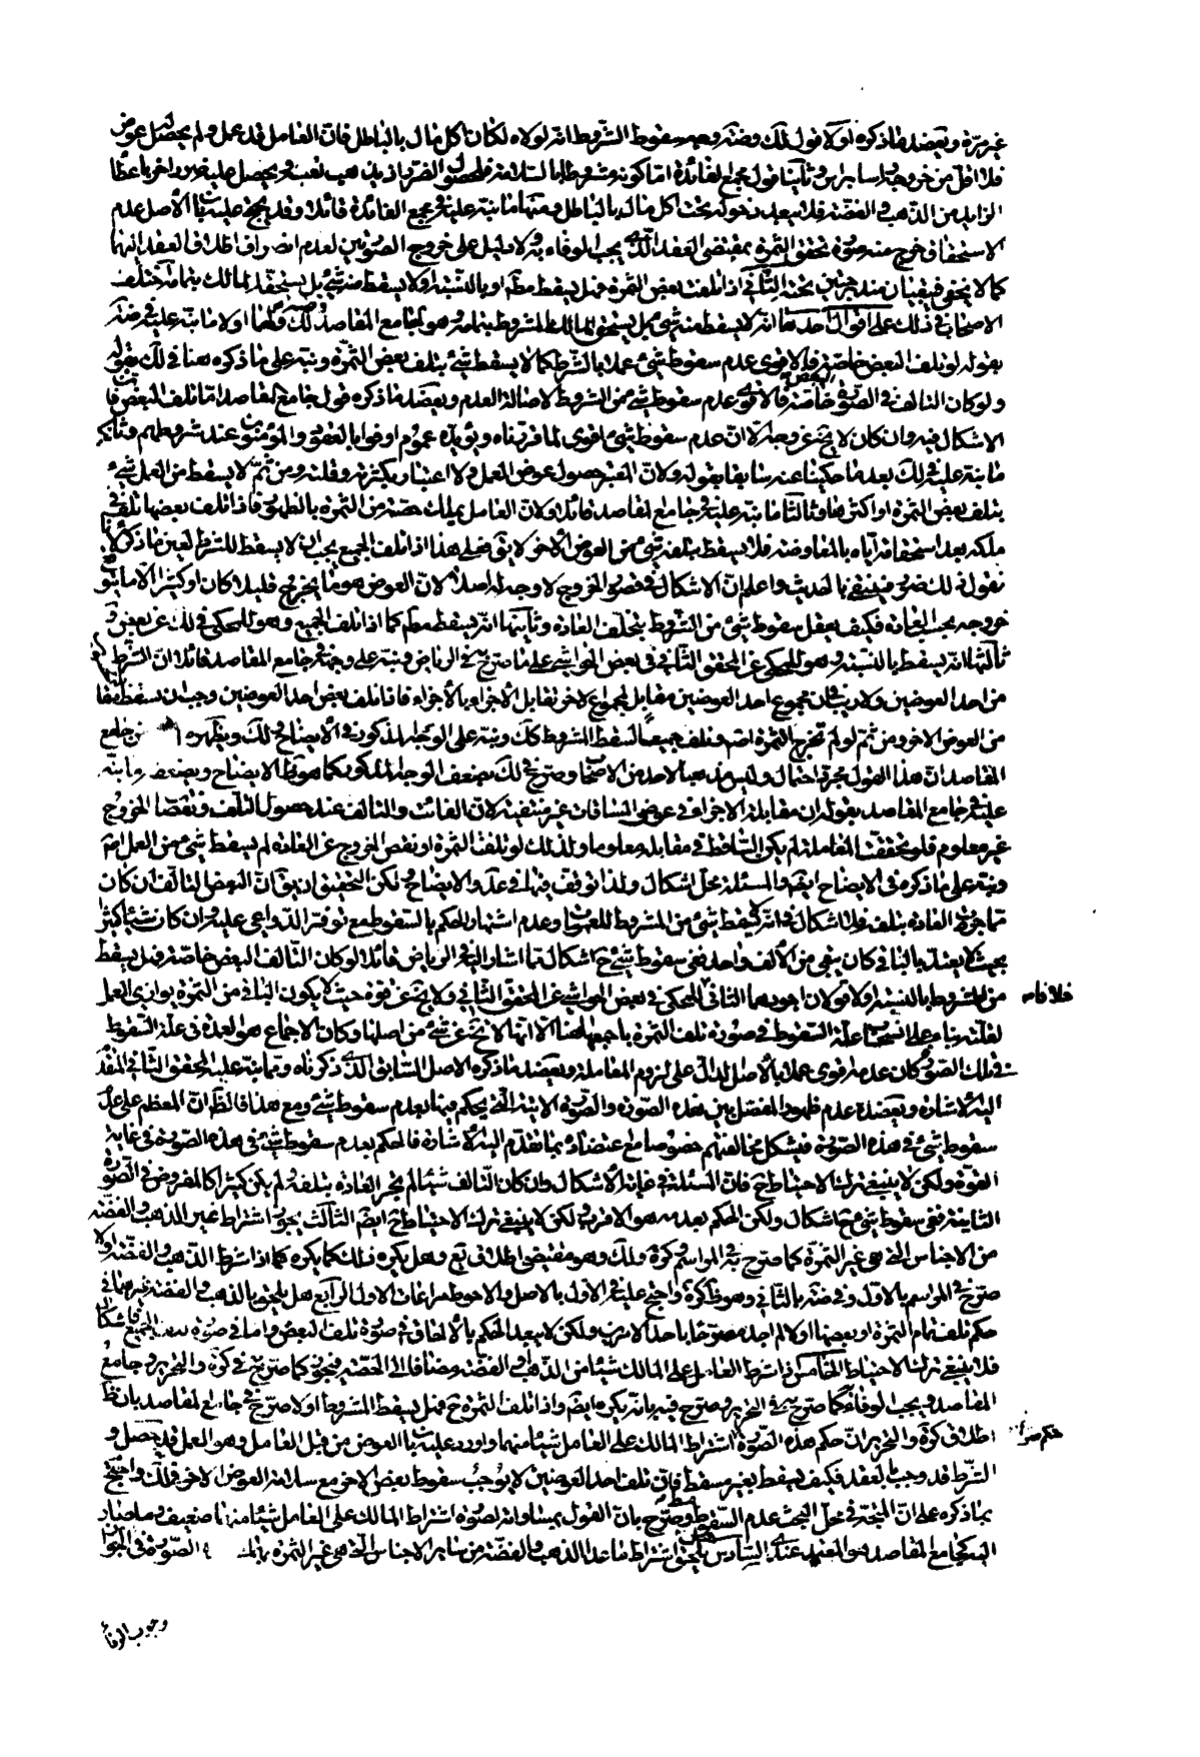 غير مرّة ويعضد ما ذكره اولا قول لك وضة وجه سقوط الشروط انه لولاه لكان اكل مال بالباطل فان العامل قد عمل ولم يحصل له عوض
فلا اقل من خروجه راسا براس وثانيا قول مجمع الفائدة اما كونه مشروطا بالسلامة فلحصول الضرر اذ يذهب تعبه ويحصل عليه ضرر اخر باعطاء
الزايد من الذهب والفضة فلا يبعد دخوله تحت اكل مال بالباطل ومنها ما نبّه عليه فى مجمع الفائدة قائلا وقد يحتج عليه بان الاصل عدم
الاستحقاق خرج منه صورة تحقق الثمرة بمقتضى العقد الّذى يجب الوفاء به ولا دليل على خروج الصورتين لعدم انصراف اطلاق العقد اليهما
كما لا يخفى فيبقيان مندرجين تحته الثانى اذا تلفت بعض الثمرة فهل يسقط مطلقا او بالنسبة اولا يسقط منه شئ بل يستحق المالك تمامه اختلف
الاصحاب فى ذلك على اقوال احدها انّه لا يسقط منه شئ بل يستحق المالك المشروط بتمامه وهو لجامع المقاصد ولك وضة اما اولا ما نبّه عليه فى ضة
بقوله لو تلف البعض خاصة فالاقوى عدم سقوط شئ عملا بالشرط كما لا يسقط شئ بتلف بعض الثمرة ونبّه على ما ذكره هنا فى لك بقوله
ولو كان التالف فى الصورة البعض خاصة فالاقوى عدم سقوط شئ من الشروط لاصالة العدم ويعضد ما ذكره قول جامع المقاصد اما تلف البعض فان
الاشكال فيه وان كان لا يخ عن وجه الا ان عدم سقوط شئ اقوى لما قرّرناه ويؤيده عموم اوفوا بالعقود والمؤمنون عند شروطهم وثانيها
ما نبّه عليه فى لك بعد ما حكينا عنه سابقا بقوله ولان المعتبر حصول عوض العمل ولا اعتبار بكثرته وقلته ومن ثم لا يسقط من العمل شئ
بتلف بعض الثمرة او اكثرها وثالثا ما نبّه عليه فى جامع المقاصد قائلا ولان العامل يملك حصته من الثمرة بالظهور فاذا تلف بعضها تلف فى
ملكه بعد استحقاقه ايّاه بالمعاوضة فلا يسقط بتلفه شئ من العوض الاخر لا يق فعلى هذا اذا تلف الجميع يجب ان لا يسقط للشرط لعين ما ذكر لانا
نقول ذلك صورة فينبغى بالحديث واعلم ان الاشكال فى قصور الخروج لا وجه له اصلا لان العوض هو ما يخرج قليلا كان او كثيرا الا ما يتوقع
خروجه بحسب العادة فكيف يعقل سقوط شئ من الشروط بتخلف العادة وثانيها انه يسقط مطلقا كما اذا تلف الجميع وهو المحكى فى لك عن بعض و
ثالثها انه يسقط بالنسبة وهو المحكى عن المحقق الثانى فى بعض الحواشى على ما صرّح به فى الرياض ونبّه على وجهه فى جامع المقاصد قائلا ان الشرط
من احد العوضين ولا ريب فى ان مجموع احد العوضين مقابل لمجموع الاخر تقابل الاجزاء بالأجزاء فاذا تلف بعض احد العوضين وجب ان يسقط مقابله
من العوض الاخر ومن ثم لو لم تخرج الثمرة اصلا وتلف جميعاً لسقط المشروط كك ونبّه على الوجه المذكور فى الايضاح ولك ويظهر من جامع
المقاصد ان هذا القول مجرّد احتمال وليس مذهبا لاحد من الاصحاب وصرّح فى لك بضعف الوجه المذكور كما هو ظ الايضاح ويضعفه ما نبّه
عليه فى جامع المقاصد بقوله ان مقابلة الاجزاء فى عوض المساقات غير منتفية لان الفائت والتالف عند حصول التلف ونقصان الخروج
غير معلوم فلو تحققت المعاملة لم يكن الساقط فى مقابله معلوما ولذلك لو تلفت الثمرة او نقص الخروج عن العادة لم يسقط شئ من العمل اصلا
ونبّه على ما ذكره فى الايضاح ايضا والمسئلة محل اشكال ولذا توقف فيها فى عد والايضاح ولكن التحقيق ان يق ان البعض التالف ان كان
مما جرت العادة بتلفه فلا اشكال فى انه لا يسقط شئ من المشروط للعمومات وعدم اشتهار الحكم بالسقوط مع توفر الدواعى عليه وان كان شيئا كثيرا
بحيث لا يعتد بالباقى كان يبقى من الألف واحد ففى سقوط شئ ح اشكال مما اشار اليه فى الرياض قائلا لو كان التالف البعض خاصة فهل يسقط
من المشروط بالنسبة اولا قولان اجودهما الثانى والمحكى فى بعض الحواشى عن المحقق الثانى ولا يخ عن قوة حيث لا يكون الباقى من الثمرة يوازى العمل
لقلّته بناء على انسحاب علّة السقوط فى صورة تلف الثمرة باجمعها هنا الا انها لا تخ عن شئ من اصلها وكان الاجماع هو العمدة فى علة السقوط
فى تلك الصورة كان عدمه اقوى عملا بالأصل الدالّ على لزوم المعاملة ويعضد ما ذكره الاصل السابق الّذى ذكرناه وما نبّه عليه المحقق الثانى المتقدم
اليه الاشارة ويعضده عدم ظهور المفصّل بين هذه الصورة والصورة الاتية الّتى يحكم فيها بعدم سقوط شئ ومع هذا فالظ ان المعظم على عدم
سقوط شئ فى هذه الصورة فيشكل مخالفتهم خصوصا مع اعتضاده بما تقدم اليه الاشارة فالحكم بعدم سقوط شئ فى هذه الصورة فى غاية
القوة ولكن لا ينبغى ترك الاحتياط ح فان المسئلة فى غاية الأشكال وان كان التالف شيئا لم يجر العادة بتلفه ولم يكن كثيرا كالمفروض فى الصورة
الثانية ففى سقوط شئ ح اشكال ولكن الحكم بعدمه هو الاقرب ولكن لا ينبغى ترك الاحتياط ح ايضا الثالث يجوز اشتراط غير الذهب والفضة
من الاجناس الّتى هى غير الثمرة كما صرّح به فى المراسم وكره ولك وهو مقتضى اطلاق يع وهل يكره ذلك كما يكره كما اذا شرط الذهب والفضة اولا
صرّح فى المراسم بالاوّل وفى ضة بالثانى وهو ظ كره واحتج عليه فى الاول بالاصل والاحوط مراعاة الاول الرابع هل يلحق بالذهب والفضة غيرهما فى
حكم تلف تمام الثمرة او بعضها اولا لم اجد مصرّحا باحد الامرين ولكن لا يبعد الحكم بالالحاق فى صورة تلف البعض واما فى صورة تلف الجميع فاشكال
فلا ينبغى ترك الاحتياط الخامس اذا شرط العامل على المالك شيئا من الذهب او الفضة مضافا الى الحصة فيجوز كما صرّح به فى كره والتحرير وجامع
المقاصد ويجب الوفاء كما صرّح به فى التحرير وصرّح فيه بانه يكره ايضا واذا تلف الثمرة ح فهل يسقط المشروط اولا صرّح فى جامع المقاصد بان ظ
اطلاق كره والتحرير ان حكم هذه الصورة حكم صورة اشتراط المالك على العامل شيئا منهما واورد عليه بان العوض من قبل العامل وهو العمل قد حصل و
الشرط قد وجب بالعقد فكيف يسقط بغير مسقط فان تلف احد العوضين لا يوجب سقوط بعض الاخر مع سلامة العوض الاخر قال واحتج
بما ذكره على ان المتجه فى محل البحث عدم السقوط مط وصرّح بان القول بمساواته لصورة اشتراط المالك على العامل شيئا منهما ضعيف وما صار
اليه فى جامع المقاصد هو المعتمد عندى السادس هل يجوز اشتراط ما عدا الذهب والفضة من ساير الاجناس الّتى هى غير الثمرة فى هذه الصورة فى الجواز
وجوب الوفاء